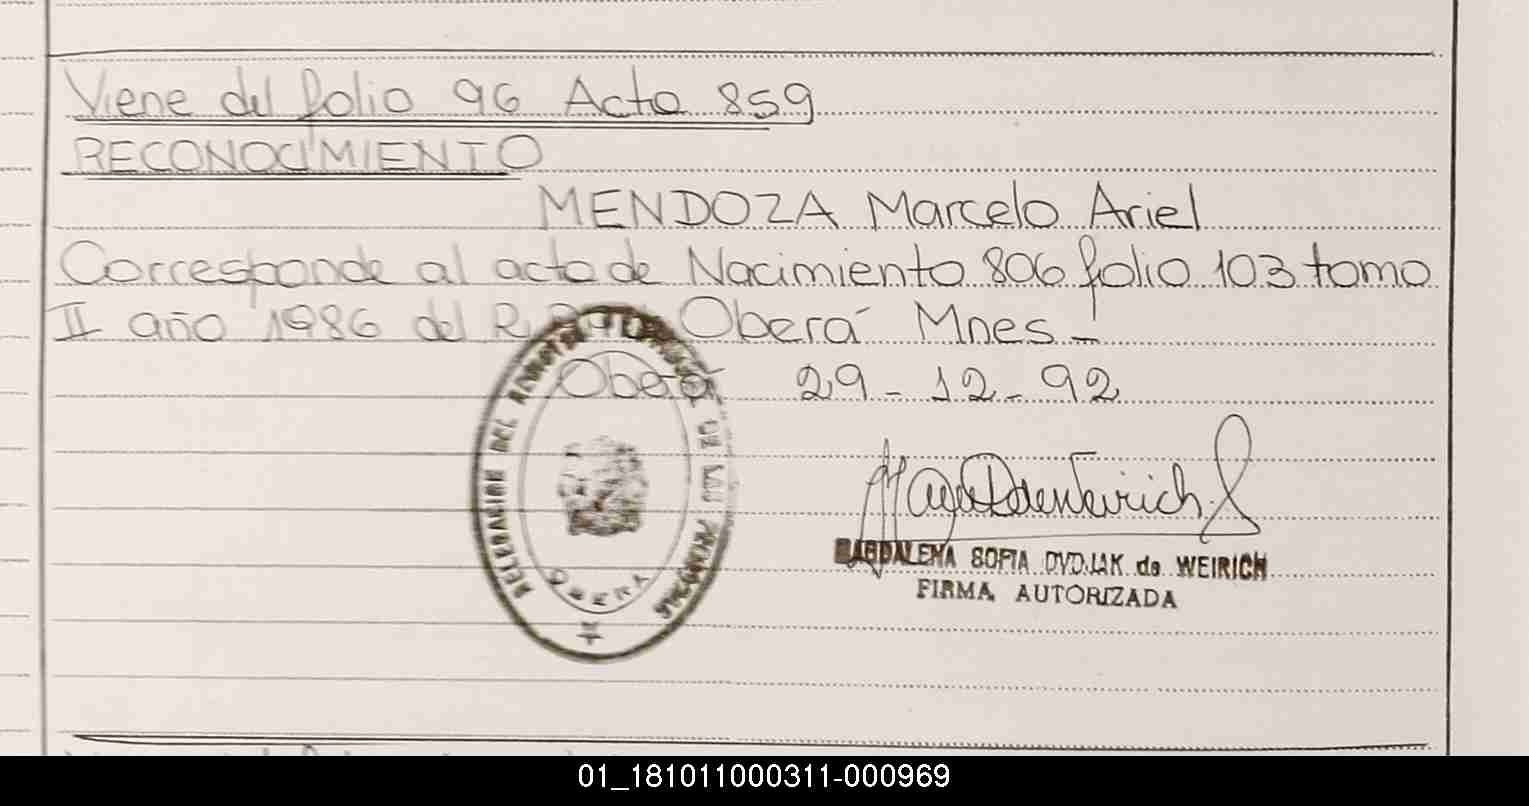 Viene del folio 96 Acta 859
RECONOCIMIENTO
MENDOZA Marcelo Ariel
Corresponde al acta de Nacimiento 806 folio 103 tomo
II año 1986 del Oberá Mnes.-
Oberá 29-12-92
DELEGACION DEL REGISTRO DE LAS PERSONAS
OBERA
MAGDALENA SOFIA DVDJAK de WEIRICH
FIRMA AUTORIZADA
01_181011000311-000969